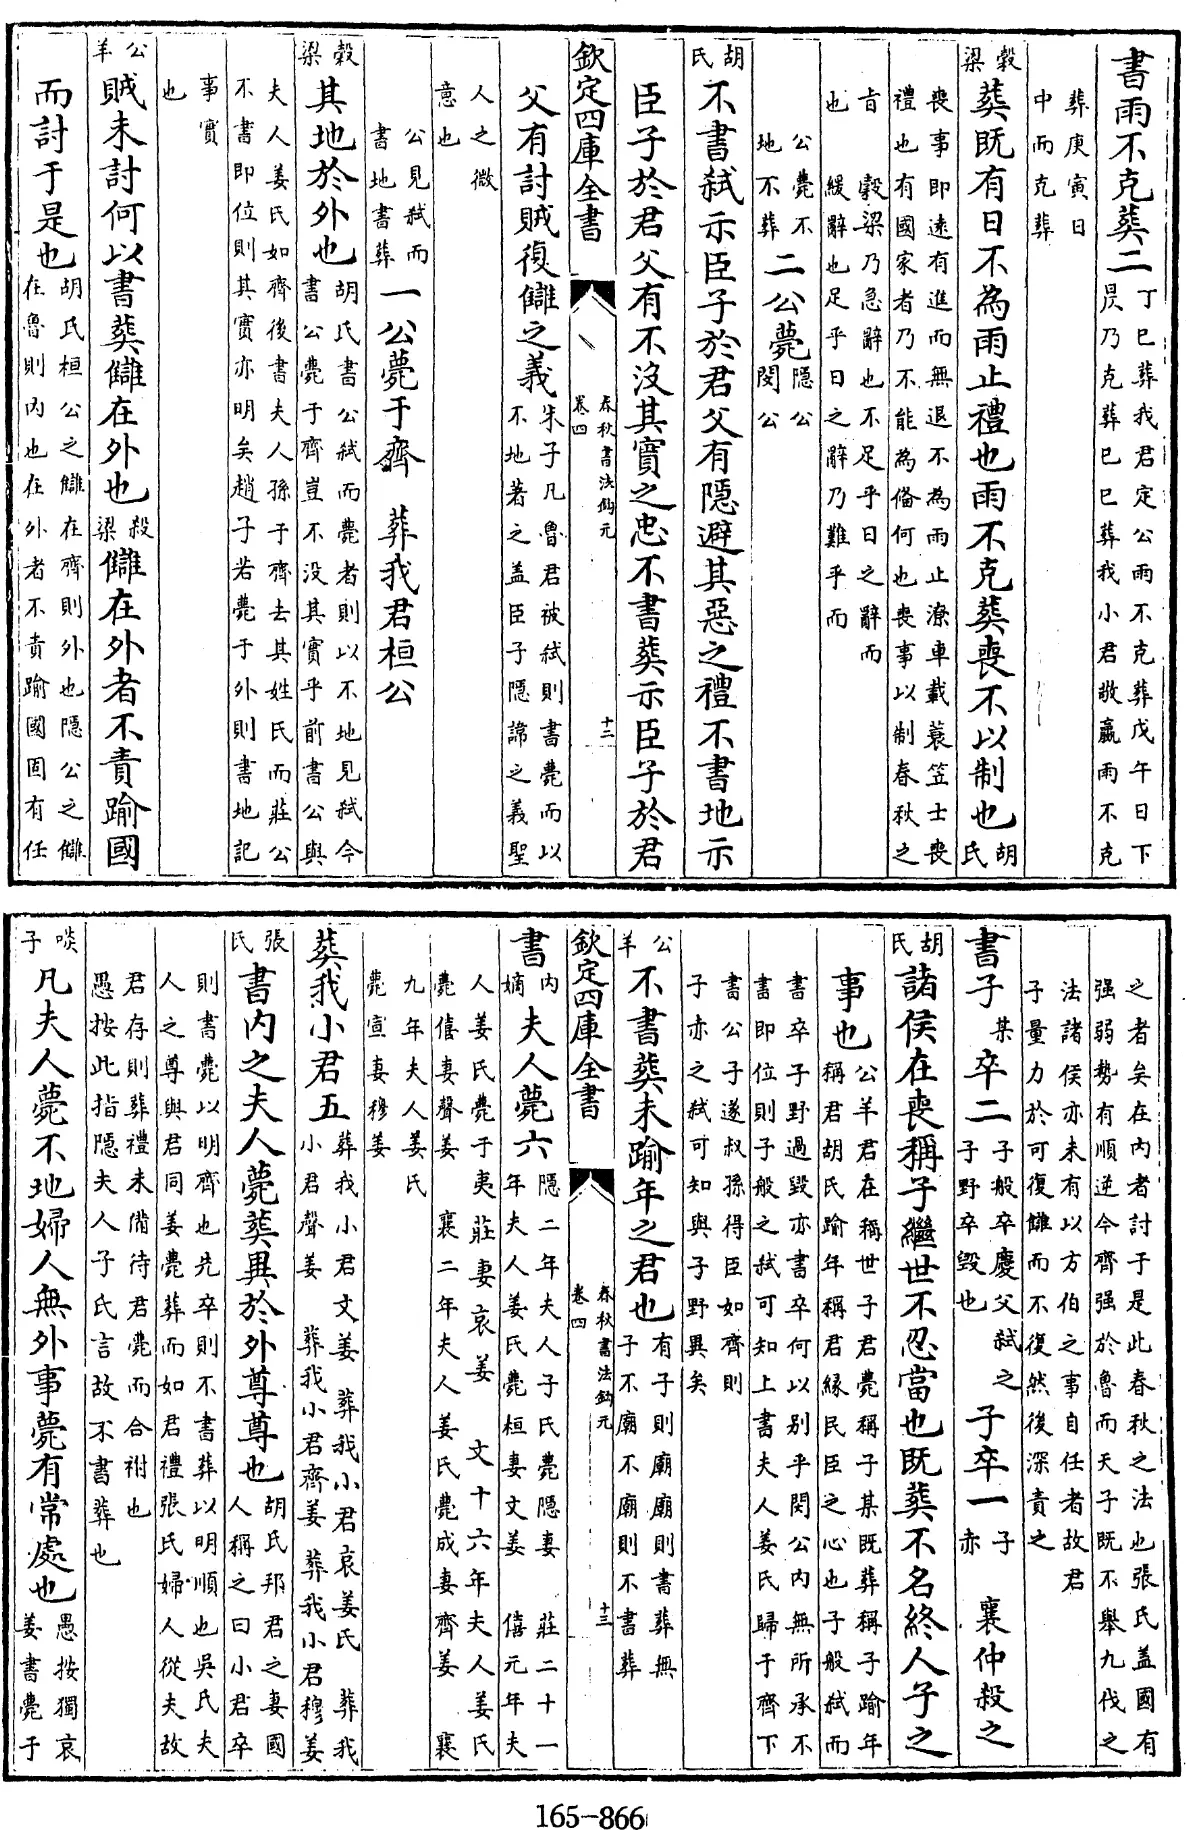 書雨不克葬二丁巳葬我君定公雨不克葬戊午日下
昃乃克葬己巳葬我小君敬嬴雨不克
葬庚寅日
中而克葬
穀梁葬既有日不為雨止禮也雨不克葬喪不以制也胡氏
喪事即遠有進而無退不為雨止潦車載蓑笠士喪
禮也有國家者乃不能為備何也喪事以制春秋之
旨 穀梁乃急辭也不足乎日之辭而
也 緩辭也足乎日之辭乃難乎而
公薨不
地不葬二公薨隱公
閔公
胡氏不書弑示臣子於君父有隱避其惡之禮不書地示
臣子於君父有不沒其實之忠不書葬示臣子於君
欽定四庫全書
春秋書法鉤元
卷四
十三
父有討賊復讎之義朱子凡魯君被弑則書薨而以
不地著之盖臣子隱諱之義聖
人之微
意也
公見弑而
書地書葬一公薨于齊 葬我君桓公
穀梁其地於外也胡氏書公弑而薨者則以不地見弑今
書公薨于齊豈不沒其實乎前書公與
夫人姜氏如齊後書夫人孫于齊去其姓氏而莊公
不書即位則其實亦明矣趙子若薨于外則書地記
事實
也
公羊賊未討何以書葬讎在外也穀梁讎在外者不責踰國
而討于是也胡氏桓公之讎在齊則外也隱公之讎
在魯則內也在外者不責踰國固有任
之者矣在內者討于是此春秋之法也張氏盖國有
强弱勢有順逆今齊强於魯而天子既不舉九伐之
法諸侯亦未有以方伯之事自任者故君
子量力於可復讎而不復然後深責之
書子某卒二子般卒慶父弑之
子野卒毀也 子卒一子
赤 襄仲殺之
胡氏諸侯在喪稱子繼世不忍當也既葬不名終人子之
事也公羊君在稱世子君薨稱子某既葬稱子踰年
稱君胡氏踰年稱君緣民臣之心也子般弑而
書卒子野過毀亦書卒何以别乎閔公內無所承不
書即位則子般之弑可知上書夫人姜氏歸于齊下
書公子遂叔孫得臣如齊則
子赤之弑可知與子野異矣
公羊不書葬未踰年之君也有子則廟廟則書葬無
子不廟不廟則不書葬
欽定四庫全書
春秋書法鉤元
卷四
十三
書內嫡夫人薨六隱二年夫人子氏薨隱妻 莊二十一
年夫人姜氏薨桓妻文姜 僖元年夫
人姜氏薨于夷莊妻哀姜 文十六年夫人姜氏
薨僖妻聲姜 襄二年夫人姜氏薨成妻齊姜 襄
九年夫人姜氏
薨宣妻穆姜
葬我小君五葬我小君文姜 葬我小君哀姜氏 葬我
小君聲姜 葬我小君齊姜 葬我小君穆姜
張氏書內之夫人薨葬異於外尊尊也胡氏邦君之妻國
人稱之曰小君卒
則書薨以明齊也先卒則不書葬以明順也吳氏夫
人之尊與君同姜薨葬而如君禮張氏婦人從夫故
君存則葬禮未備待君薨而合祔也
愚按此指隱夫人子氏言故不書葬也
啖子凡夫人薨不地婦人無外事薨有常處也愚按獨哀
姜書薨于
165-866